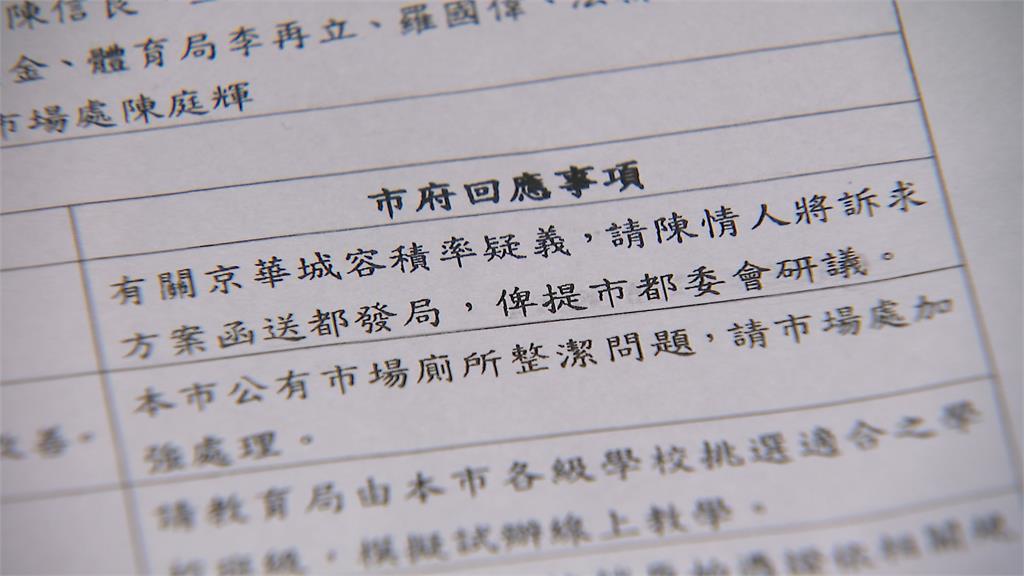 陳信良、
金、體育局李再立、羅國偉、
市場處陳庭輝
市府回應事項
有關京華城容積率疑義，請陳情人將訴求
方案函送都發局，俾提市都委會研議。
本市公有市場廁所整潔問題，請市場處加
強處理。
改善。
請教育局由本市各級學校挑選適合之學
模擬試辦線上教學。